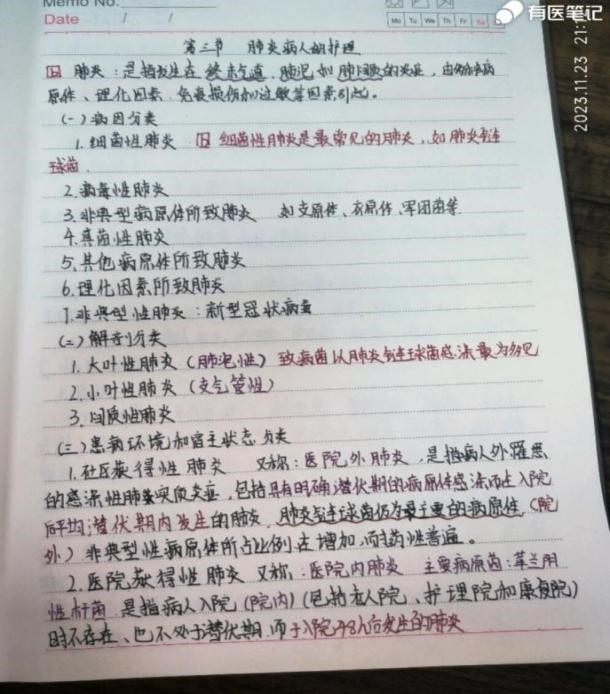 Memo No.
Date / /
Mo Tu We Th Fr Sa
有医笔记
2023.11.23 21:1
第三节 肺炎病人的护理
肺炎：是指发生在终末气道、肺泡和肺间质的炎症，由病
原体、理化因素、免疫损伤和过敏等因素引起。
(一) 病因分类
1. 细菌性肺炎 细菌性肺炎是最常见的肺炎，如肺炎链
球菌.
2. 病毒性肺炎
3. 非典型病原体所致肺炎 如支原体、衣原体、军团菌等.
4. 真菌性肺炎
5. 其他病原体所致肺炎
6. 理化因素所致肺炎
7. 非典型性肺炎：新型冠状病毒
(二) 解剖分类
1. 大叶性肺炎 (肺泡性) 致病菌以肺炎链球菌感染最为多见
2. 小叶性肺炎 (支气管性)
3. 间质性肺炎
(三) 患病环境和宿主状态分类
1. 社区获得性肺炎 又称：医院外肺炎，是指病人外罹患
的感染性肺实质炎症，包括具有明确潜伏期的病原体感染而在入院
后平均潜伏期内发生的肺炎，肺炎链球菌仍为最主要的病原体，(院
外) 非典型性病原体所占比例在增加，耐药性普遍。
2. 医院获得性肺炎 又称：医院内肺炎 主要病原菌：革兰阴
性杆菌 是指病人入院 (院内) (包括老人院、护理院和康复院)
时不存在、也不处于潜伏期，而于入院48h后发生的肺炎